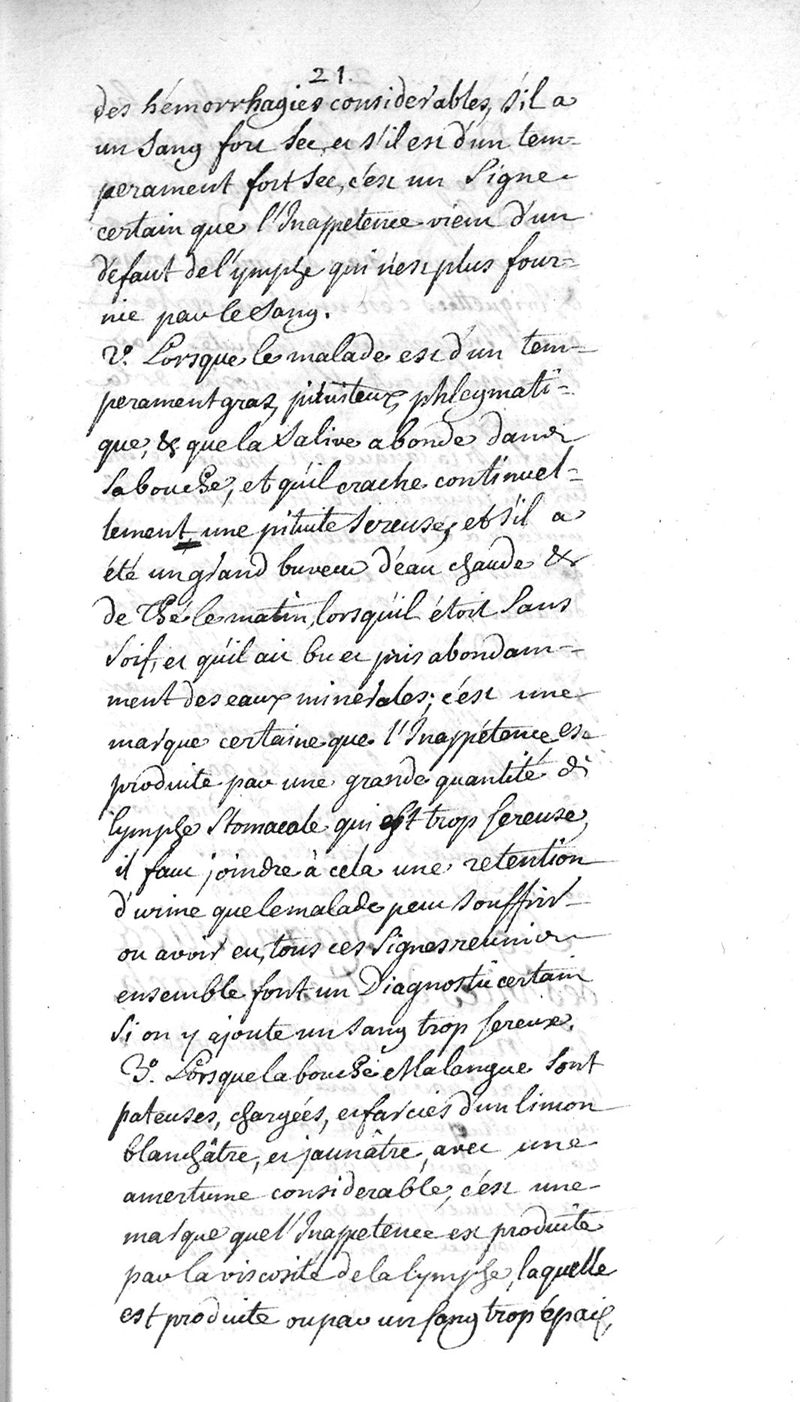 21.
des hémorrhagies considerables, s'il a
un sang fort sec, et s'il est d'un tem=
perament fort sec, c'est un signe
certain que l'Inappetence vient d'un
défaut de lymphe qui n'est plus four=
nie par le sang.
2.° Lorsque le malade est d'un tem=
perament gras, pituiteux, phlegmati=
que, & que la salive abonde dans
sa bouche, et qu'il crache continuel=
lement une pituite sereuse, et s'il a
été un grand buveur d'eau chaude &
de Thé le matin, lorsqu'il étoit sans
soif, et qu'il ait bu et pris abondam=
ment des eaux minérales; c'est une
marque certaine que l'Inappétence est
produite par une grande quantité de
lymphe stomacale qui est trop sereuse,
il faut joindre à cela une retention
d'urine que le malade peut souffrir
ou avoir eu, tous ces signes reunis
ensemble font un Diagnostic certain
si on y ajoute un sang trop sereux.
3.° Lorsque la bouche et la langue sont
pateuses, chargées, et farcies d'un limon
blanchâtre, et jaunâtre, avec une
amertume considerable, c'est une
marque que l'Inappetence est produite
par la viscosité de la lymphe, laquelle
est produite ou par un sang trop épais,